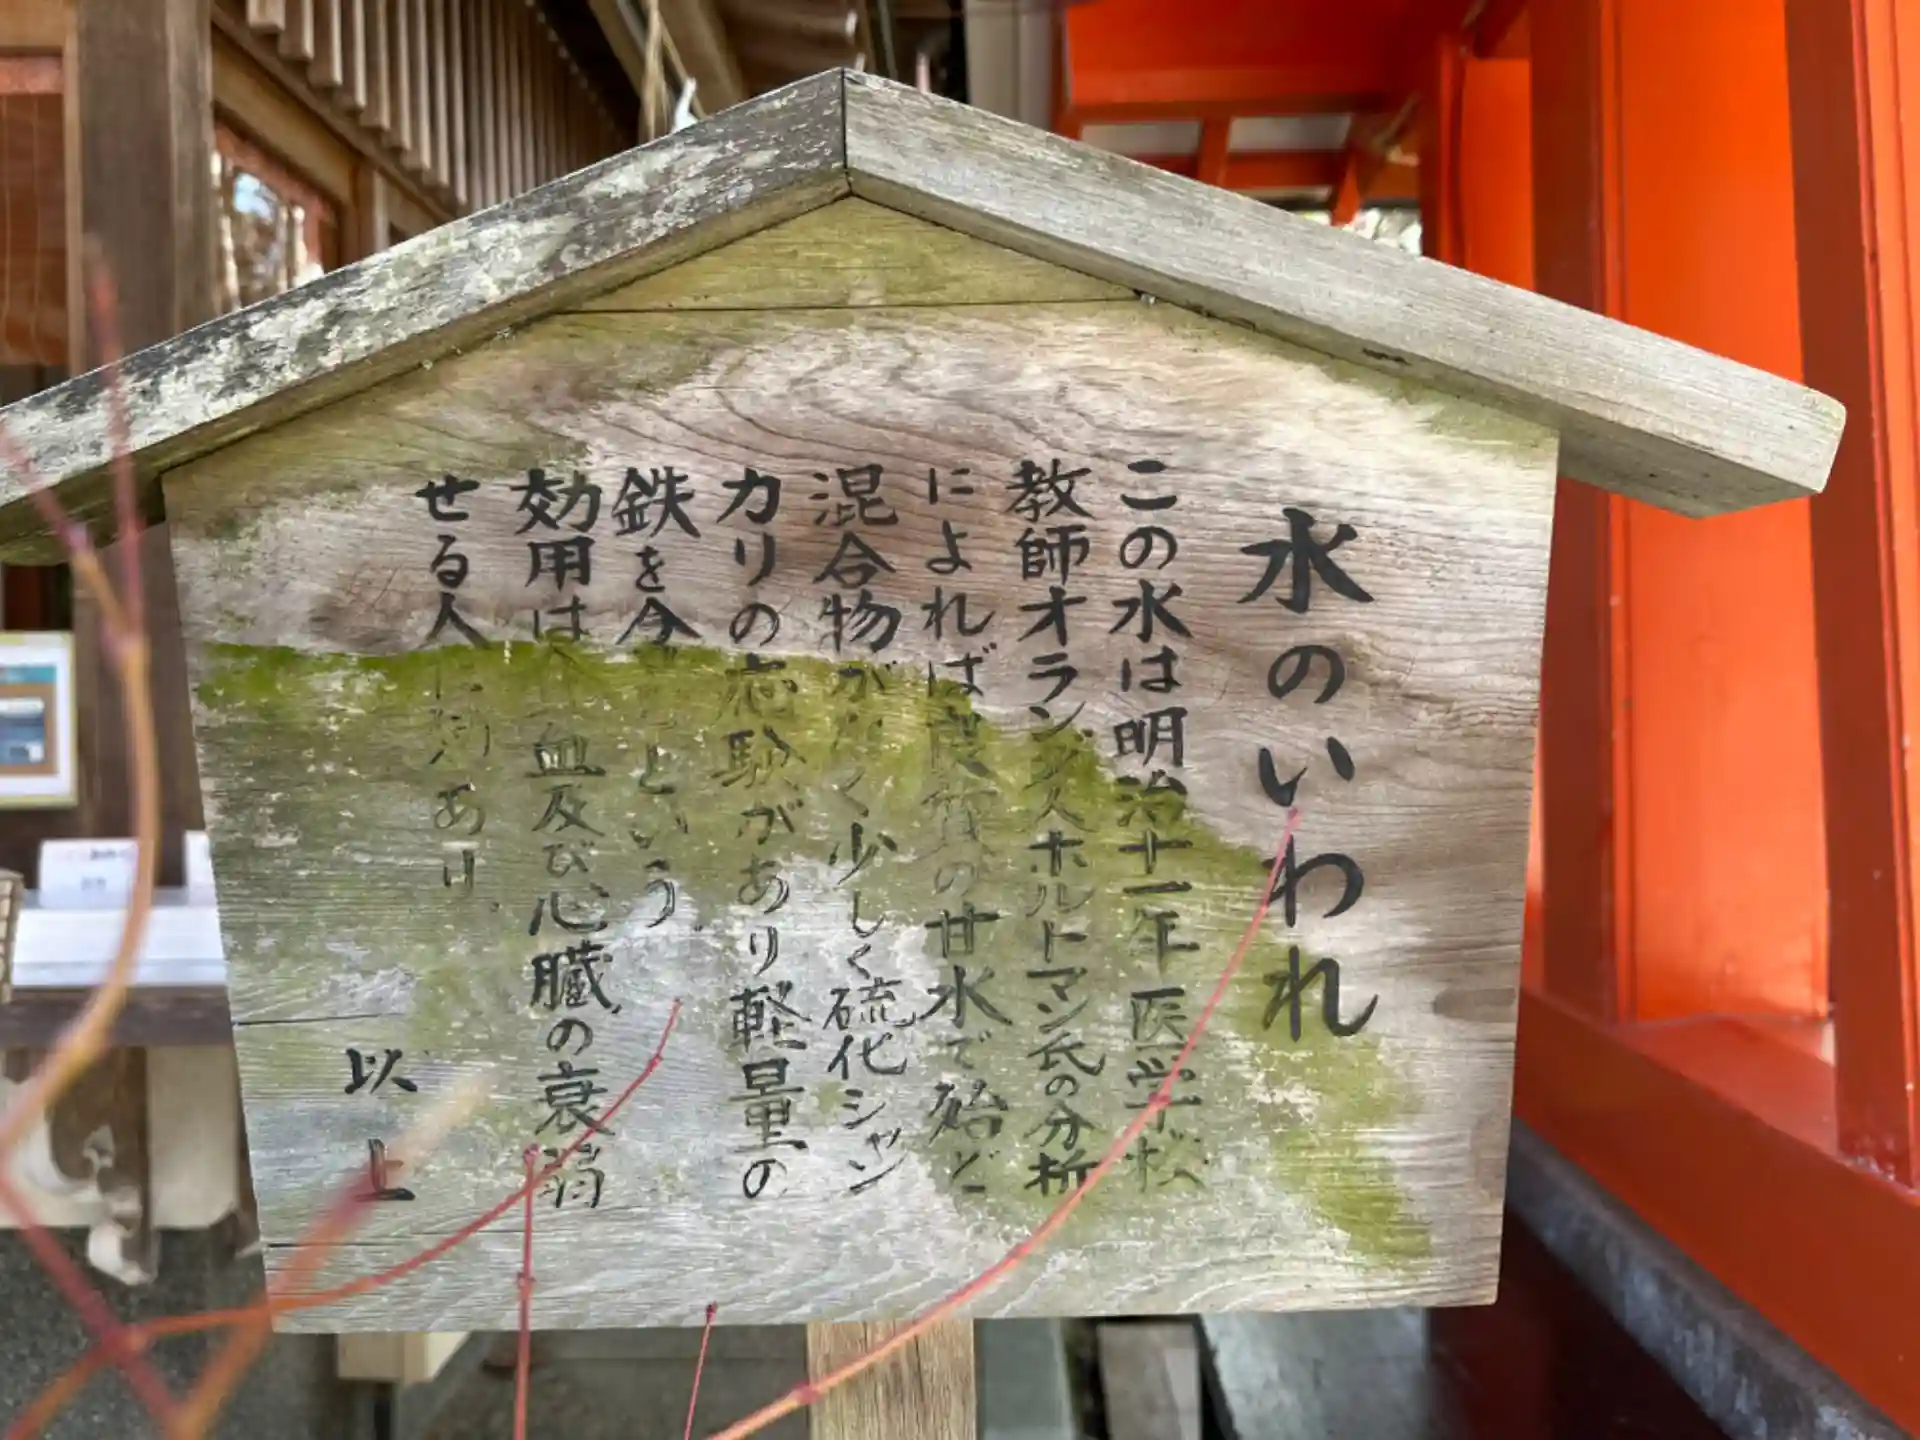 水のいわれ
この水は明治十一年医学校
教師オランダ人ホルトマン氏の分析
によれば良質の甘水で殆ど
混合物がなく少しく硫化シャン
カリの応験があり軽量の
鉄を含 という
効用は 血及び心臓の衰弱
せる人に効あり
以上